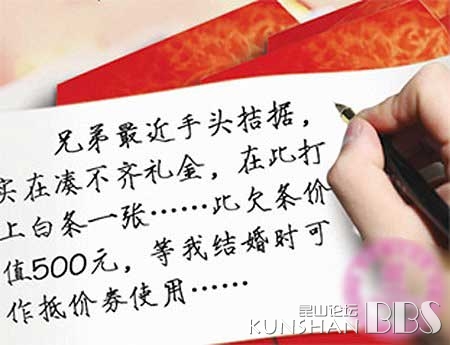 兄弟最近手头拮据，
实在凑不齐礼金，在此打
上白条一张……此欠条价
值500元，等我结婚时可
作抵价券使用……
昆山论坛
KUNSHAN BBS